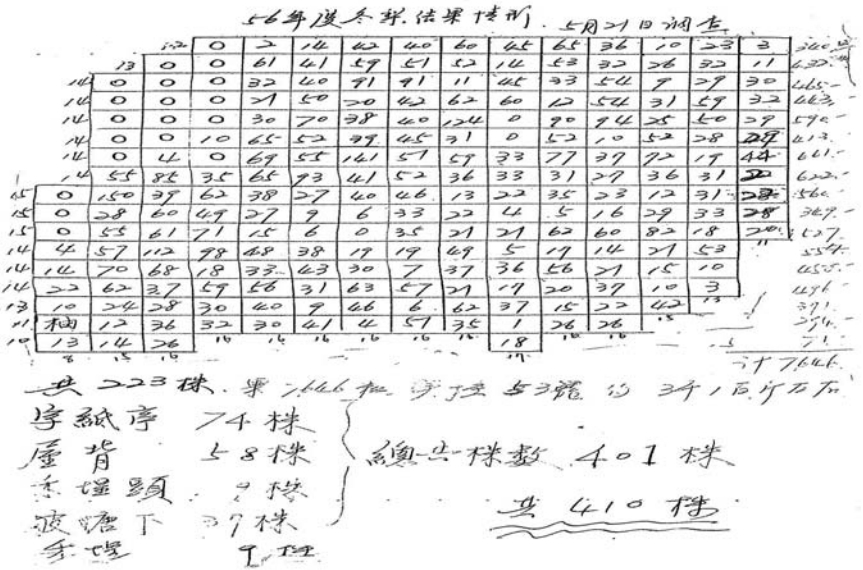 56年度 結果情形. 5月21日调查
12 0 2 14 42 40 60 45 65 36 10 23 3 340
13 0 0 61 41 59 51 52 14 53 32 26 32 11 432
14 0 0 0 32 40 91 91 11 45 33 54 9 29 30 465
14 0 0 0 21 50 20 42 62 60 12 54 31 59 32 443
14 0 0 0 30 70 38 40 124 0 90 94 25 50 29 590
14 0 0 10 65 52 39 45 31 0 52 10 52 28 29 413
14 0 4 0 69 55 141 51 59 33 77 37 72 19 44 661
14 55 85 35 65 93 41 52 36 33 31 27 36 31 22 622
15 0 150 39 62 38 27 40 46 13 22 35 23 12 31 560
15 0 28 60 49 27 9 6 33 22 4 5 16 29 33 28 349
15 0 55 61 71 15 6 0 35 21 21 62 60 82 18 20 527
14 4 57 112 98 48 38 19 19 49 5 17 14 21 53 11 554
14 14 70 68 18 33 43 30 7 37 36 56 21 15 10 455
14 22 62 37 59 56 31 63 57 21 17 20 37 10 3 496
13 10 24 28 30 40 9 46 6 62 37 15 22 42 13 371
11 柚 12 36 32 30 41 4 51 35 1 26 26 15 294
10 13 14 26 16 16 16 16 16 18 16 16 71
8 15 16 17 計7646
共223株. 果7646粒
字紙亭 74株
屋背 58株 總共株数 401株
9株
塘下 37株 共410株
9